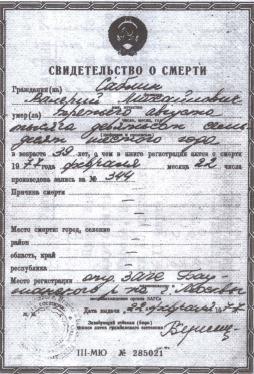 СВИДЕТЕЛЬСТВО О СМЕРТИ
Гражданин(ка)
Валерий Михайлович
умер(ла) третьего августа
тысяча девятьсот семь
десят шестого года
в возрасте 39 лет, о чем в книге регистрации актов о смерти
1977 года февраля месяца 22 числа
произведена запись за № 344
Причина смерти —
Место смерти: город, селение —
район —
область, край —
республика —
Место регистрации отд. ЗАГС Бау
манского р-на г. Москвы
наименование органа ЗАГСа
Дата выдачи „22“ февраля 1977
Заведующий отделом (бюро)
записи актов гражданского состояния
III-МЮ № 285021